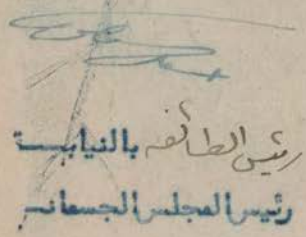 رئيس الطائفه بالنيابـــة
رئيس المجلس الجسمانـي